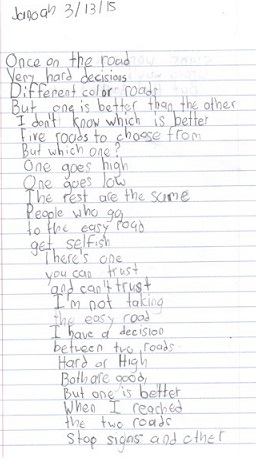 Janoah 3/13/15
Once on the road
Very hard decisions
Different color roads
But one is better than the other
I don't know which is better
Five roads to choose from
But which one?
One goes high
One goes low
The rest are the same
People who go
to the easy road
get selfish
There's one
you can trust
and can't trust
I'm not taking
the easy road
I have a decision
between two roads
Hard or High
Both are good,
But one is better
When I reached
the two roads
Stop signs and other